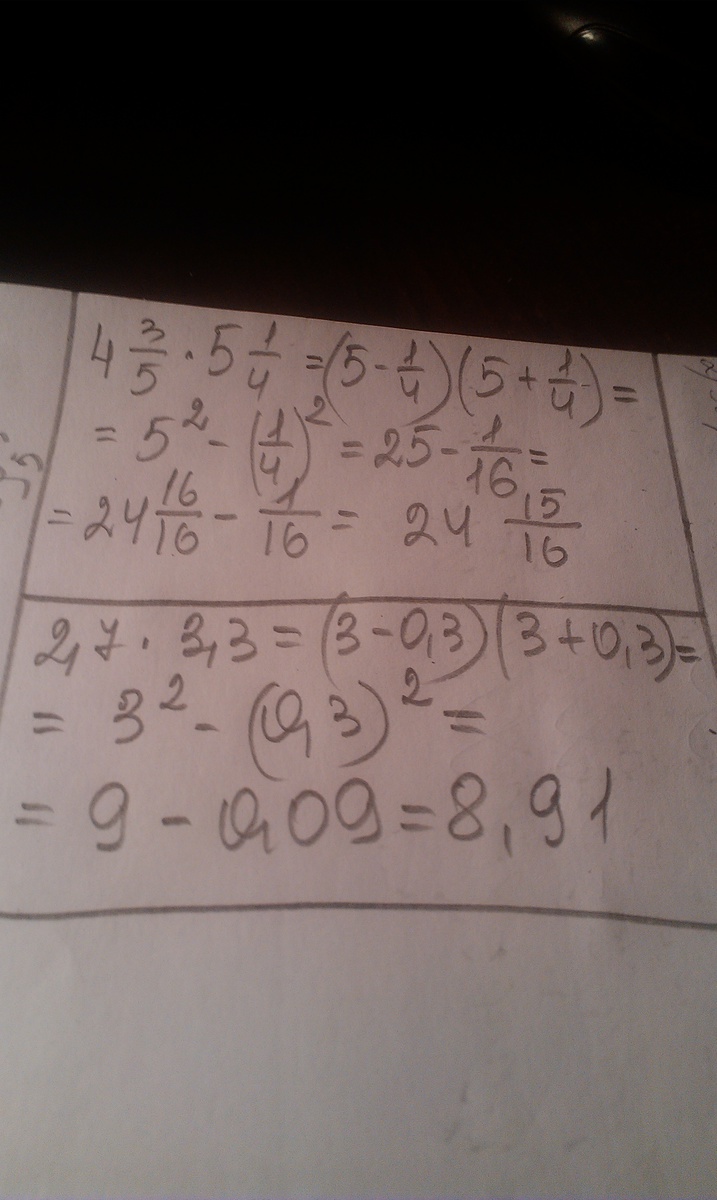 4 3/5 · 5 1/4 = (5 - 1/4)(5 + 1/4) =
= 5² - (1/4)² = 25 - 1/16 =
= 24 16/16 - 1/16 = 24 15/16
2,7 · 3,3 = (3 - 0,3)(3 + 0,3) =
= 3² - (0,3)² =
= 9 - 0,09 = 8,91